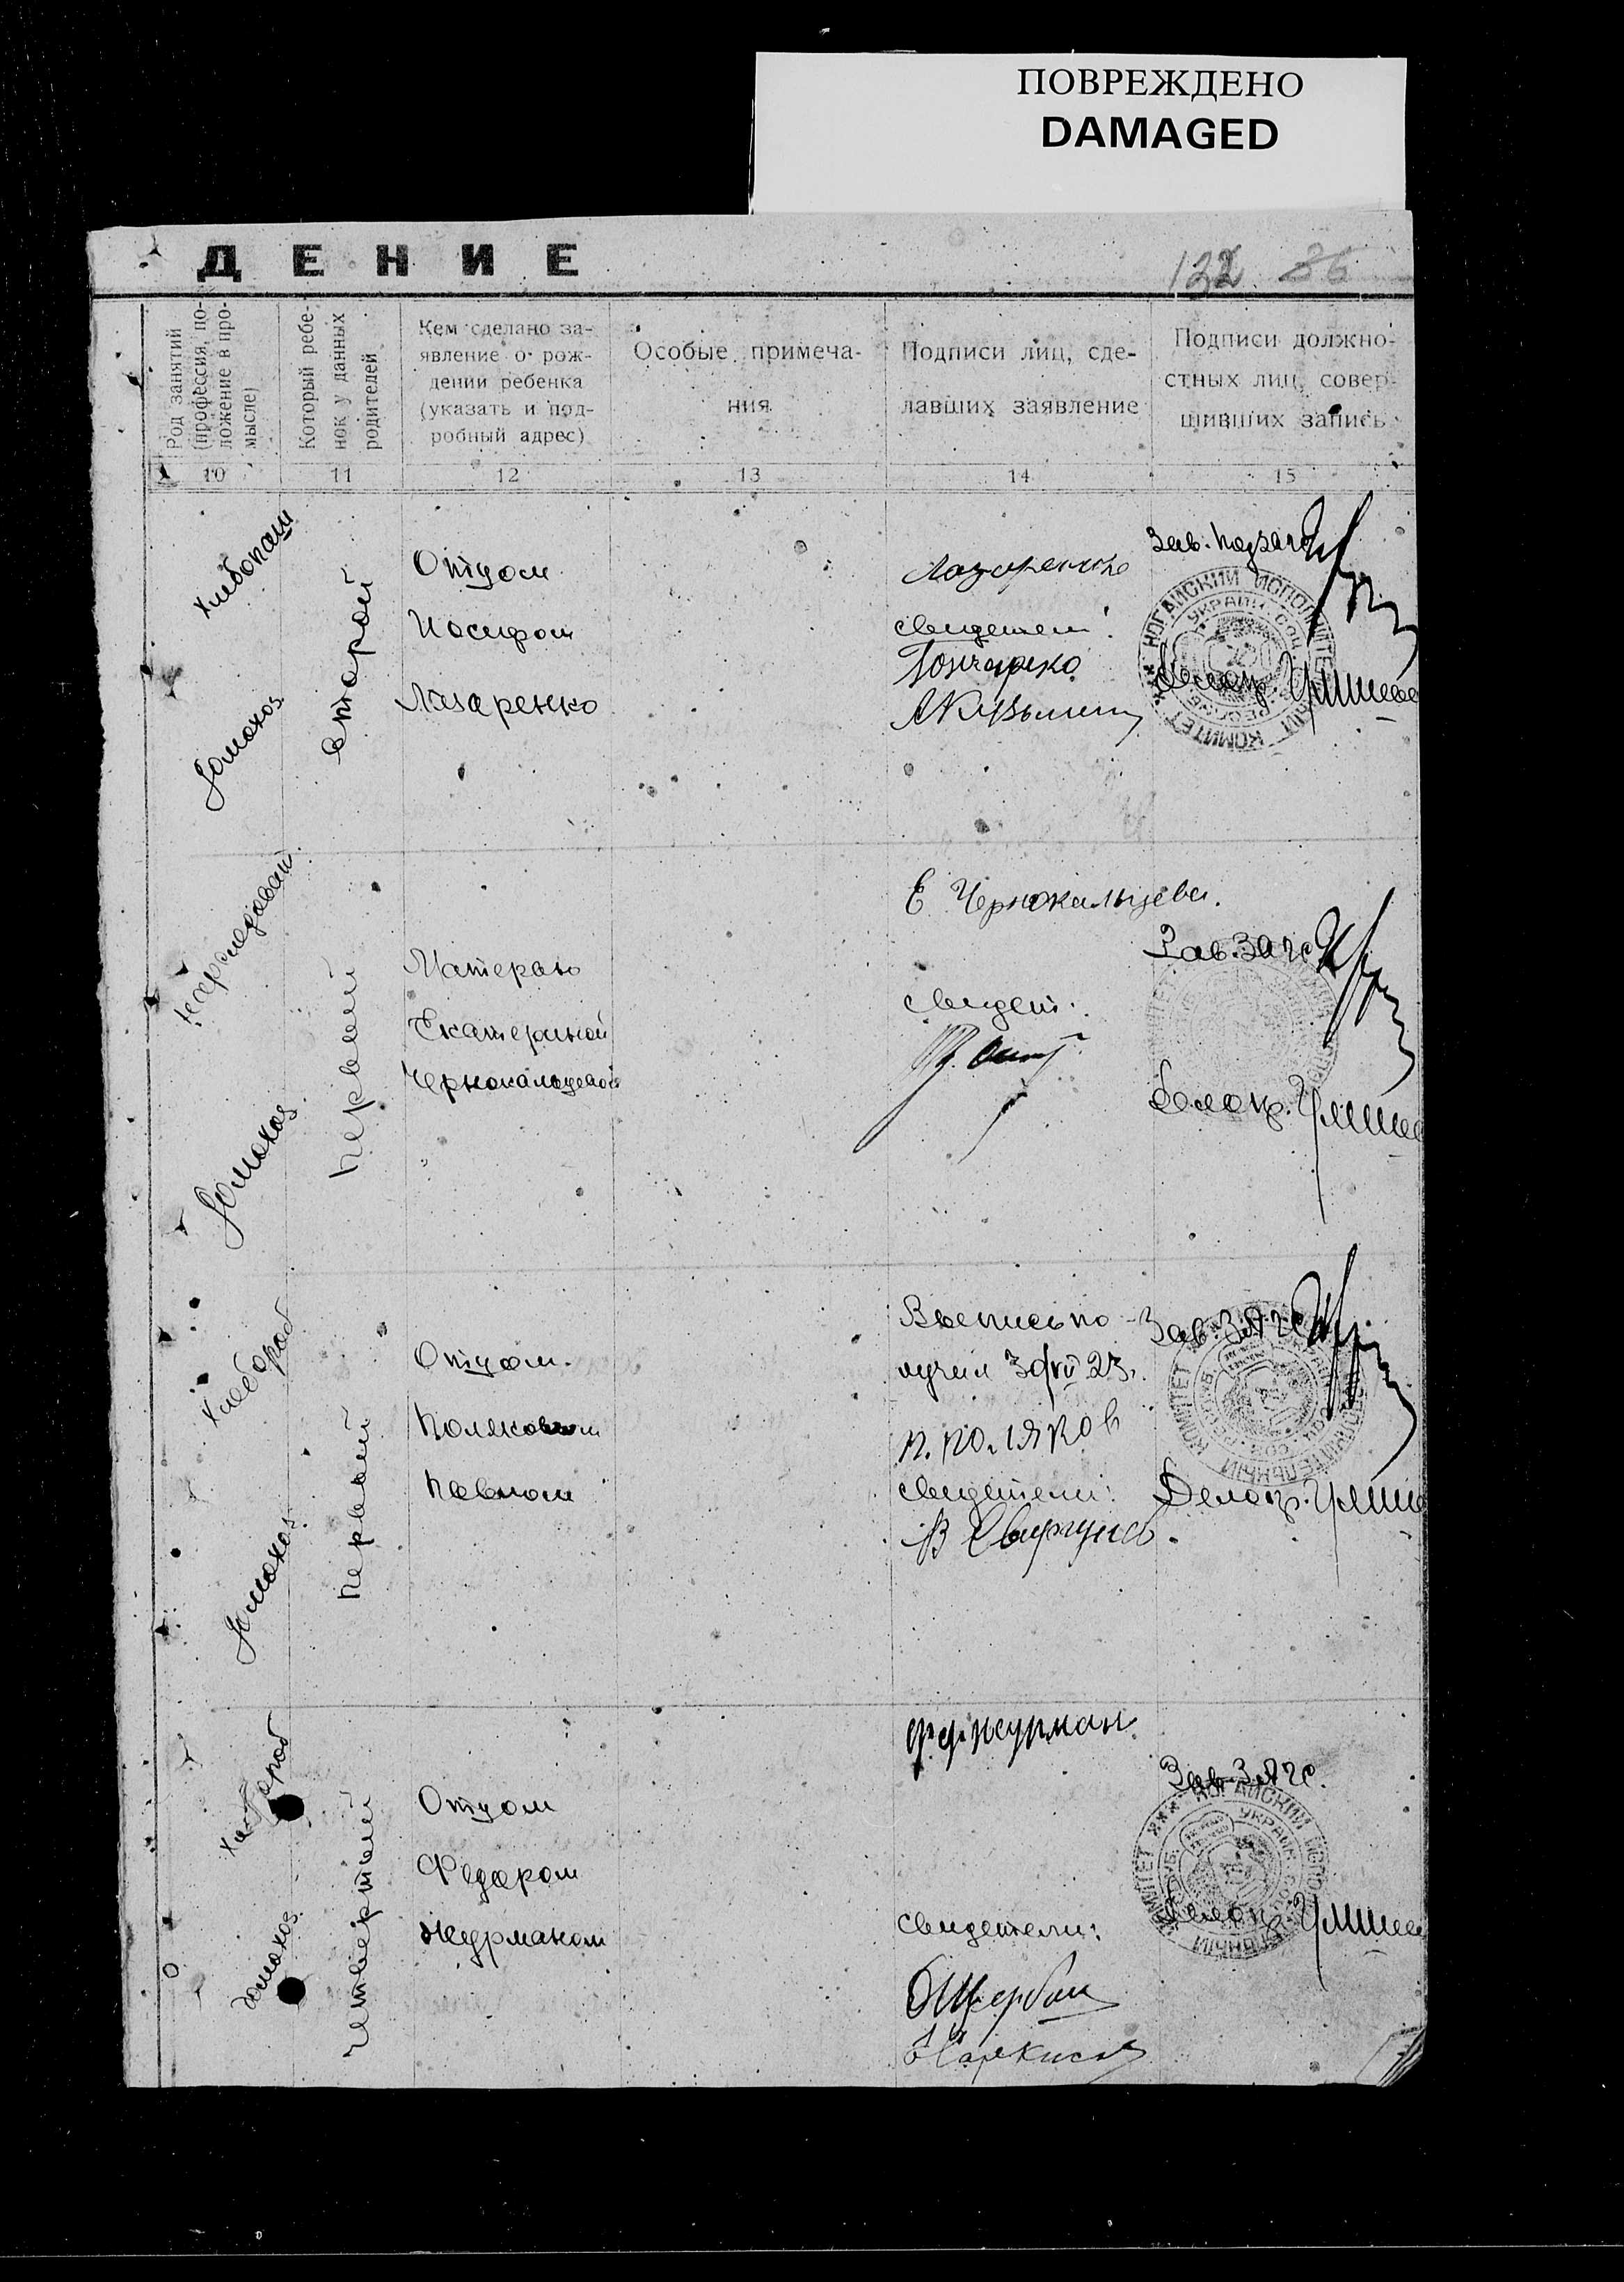 ПОВРЕЖДЕНО
DAMAGED
ДЕНИЕ
122 86
Род занятий (профессия, по-
ложение в про-
мысле)
Который ребе-
нок у данных
родителей
Кем сделано за-
явление о рож-
дении ребенка
(указать и под-
робный адрес)
Особые примеча-
ния
Подписи лиц, сде-
лавших заявление
Подписи должно-
стных лиц, совер-
шивших запись
10 11 12 13 14 15
хлебопаш
домохоз
второй
Отцом
Иосифом
Лазаренко
Лазаренко
свидетели:
Гончаренко
Зав.
НОГАЙСКИЙ ИСПОЛНИТЕЛЬНЫЙ КОМИТЕТ
Делопр.
домохоз
первый
Матерью
Екатериной
Чернокальцевой
Е Чернокальцева.
свидет:
Зав. Загс
Делопр.
хлебороб
домохоз
первый
Отцом
Поляковым
Павлом
Выпись по-
лучил 30/VII 23.
П. ПОЛЯКОВ
свидетели:
Зав. Загс
Делопр.
хлебороб
домохоз.
четвертый
Отцом
Федором
Журманом
Ф. Журман
свидетели:
Щербак
Зав. Загс.
НОГАЙСКИЙ ИСПОЛНИТЕЛЬНЫЙ КОМИТЕТ
Делопр.